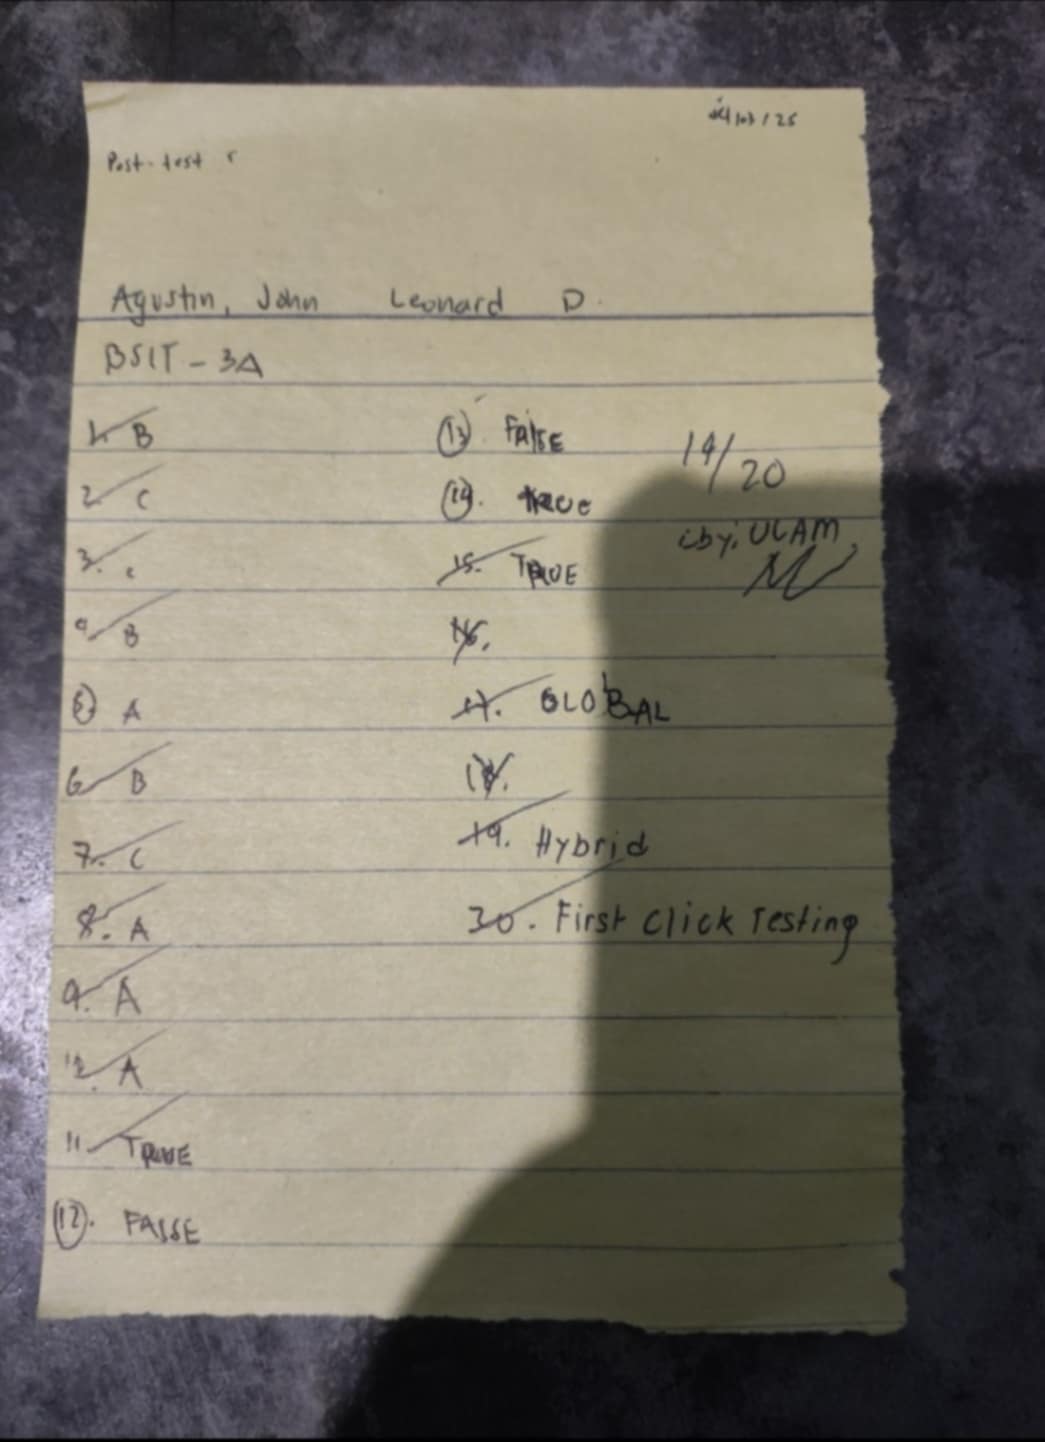 Post-test
Agustin, John Leonard D.
BSIT - 3A
1. B
2. C
3. C
4. B
5. A
6. B
7. C
8. A
9. A
A
11. TRUE
12. FALSE
13. FALSE
14. TRUE
15. TRUE
16.
17. GLOBAL
18.
19. Hybrid
30. First Click Testing
14/20
by: ULAM